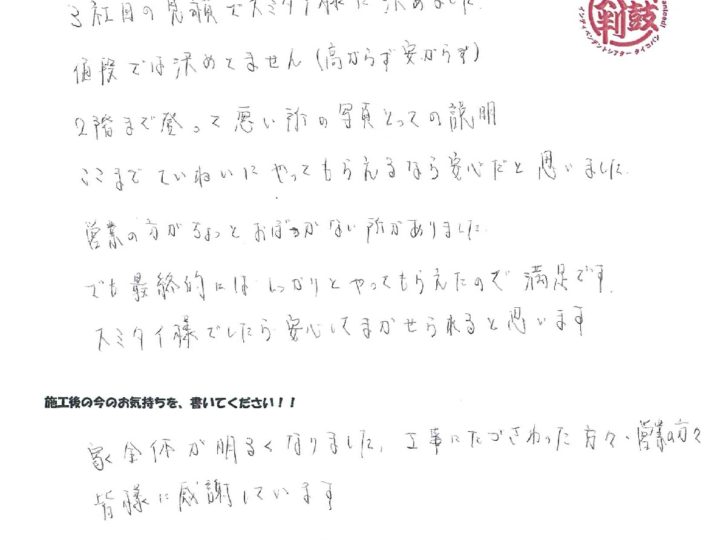 3社目の見積でスミタイ様に決めました
値段では決めてません(高からず安からず)
2階まで登って悪い所の写真とっての説明
ここまでていねいにやってもらえるなら安心だと思いました.
営業の方がちょっとおぼつかない所がありました.
でも最終的にはしっかりとやってもらえたので満足です.
スミタイ様でしたら安心してまかせられると思います
施工後の今のお気持ちを、書いてください!!
家全体が明るくなりました. 工事にたずさわった方々・営業の方々
皆様に感謝しています
判 鼓
インディペンデントシアター タイコバン